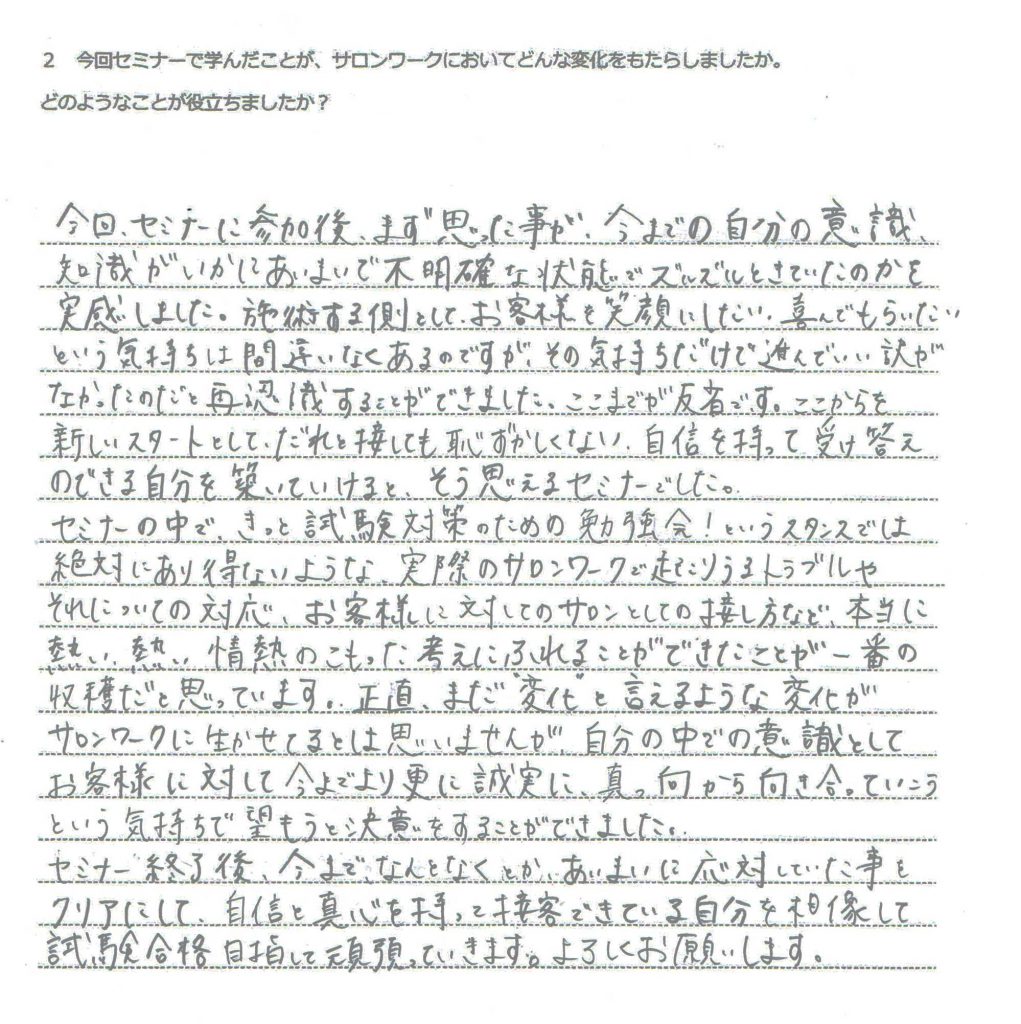 2　今回セミナーで学んだことが、サロンワークにおいてどんな変化をもたらしましたか。
どのようなことが役立ちましたか？
今回、セミナーに参加後、まず思った事が、今までの自分の意識、
知識がいかにあいまいで不明確な状態でズルズルときていたのかを
実感しました。施術する側として、お客様を笑顔にしたい、喜んでもらいたい
という気持ちは間違いなくあるのですが、その気持ちだけで進んでいい訳が
なかったのだと再認識することができました。ここまでが反省です。ここからを
新しいスタートとして、だれと接しても恥ずかしくない、自信を持って受け答え
のできる自分を築いていけると、そう思えるセミナーでした。
セミナーの中で、きっと試験対策のための勉強会！というスタンスでは
絶対にあり得ないような、実際のサロンワークで起こりうるトラブルや
それについての対応、お客様に対してのサロンとしての接し方など、本当に
熱い、熱い、情熱のこもった考えにふれることができたことが一番の
収穫だと思っています。正直、まだ"変化"と言えるような変化が
サロンワークに生かせてるとは思いませんが、自分の中での意識として
お客様に対して今までより更に誠実に、真っ向から向き合っていこう
という気持ちで望もうと決意をすることができました。
セミナー終了後、今まで、なんとなくとか、あいまいに応対していた事を
クリアにして、自信と真心を持って接客できている自分を想像して
試験合格目指して頑張っていきます。よろしくお願いします。